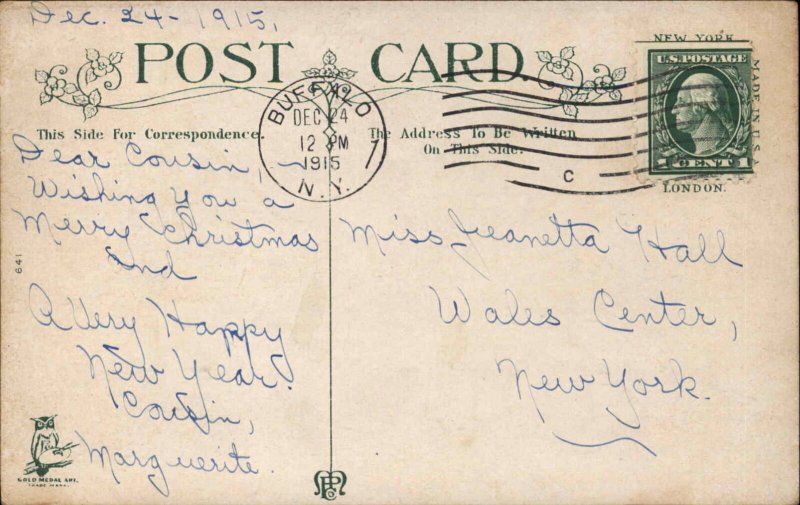 Dec. 24 - 1915,
POST CARD
NEW YORK
U.S. POSTAGE
1 CENT 1
MADE IN U.S.A.
LONDON.
BUFFALO
DEC 24
12 PM
1915
N.Y.
1
C
This Side For Correspondence.
The Address To Be Written
On This Side.
Dear Cousin, -
Wishing You a
Merry Christmas
and
A Very Happy
New Year.
Cousin,
Marguerite.
Miss Jeanetta Hall
Wales Center,
New York.
641
GOLD MEDAL ART.
TRADE MARK.